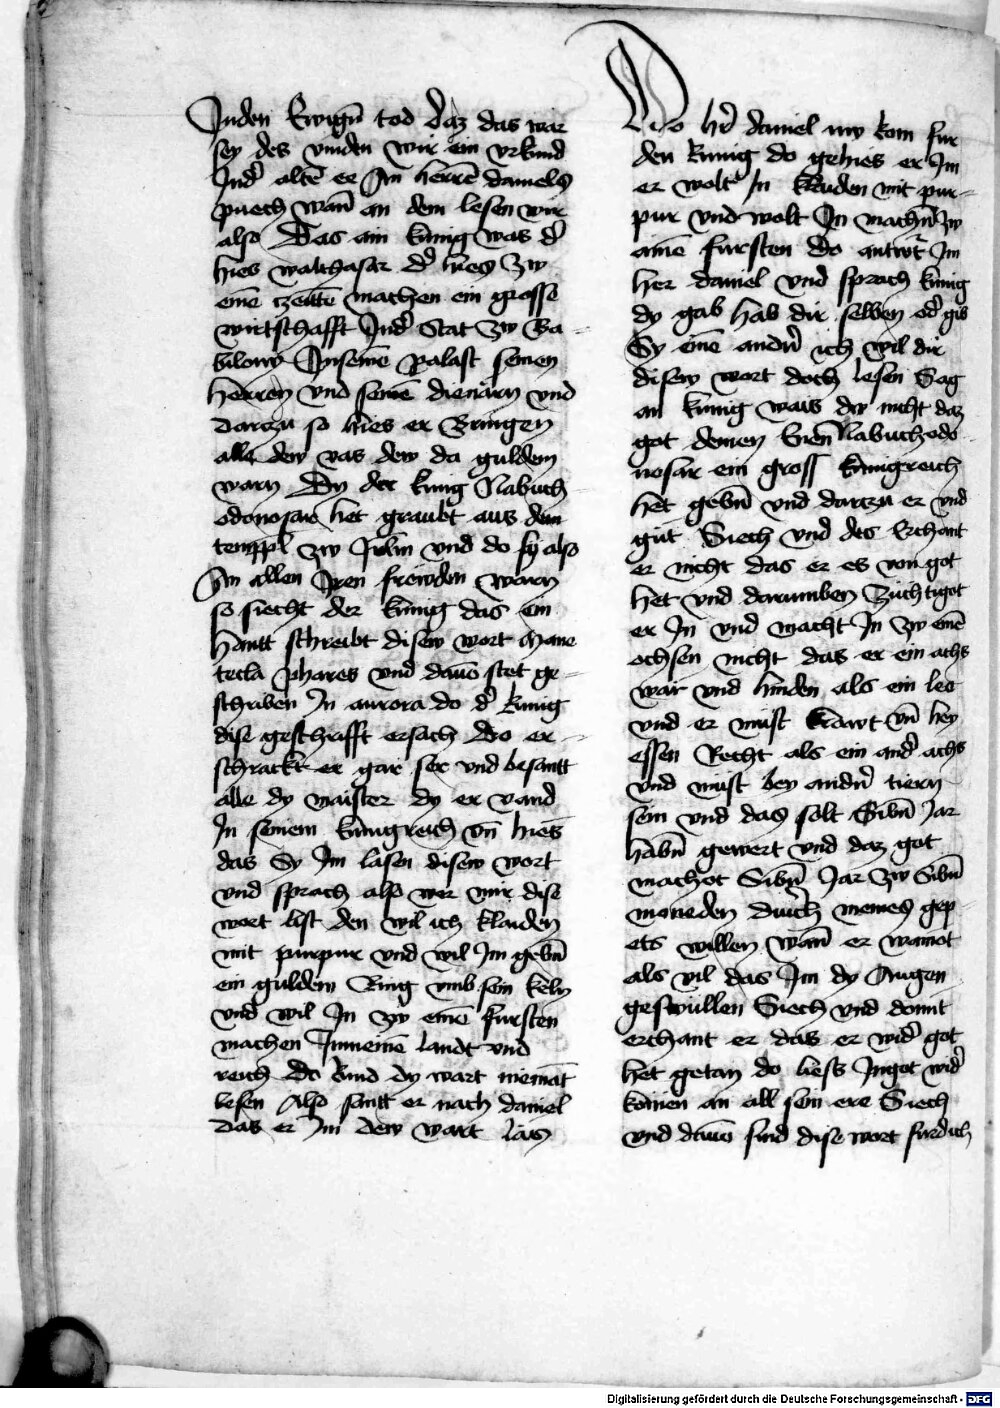 Inden Ewigñ tod daz das war
sey des vinden wir ein vrkund
Ind̕ altē ee Im herrē daniels
puech wañ an dem lesen wir
also Das ain kunig was d̕
hies walthasar d̕ hies zw
eine zeittē machen ein grosse
wirtschafft Ind̕ Stat zw Ba-
bilony Insemē palast seinen
herren vnd seinē dienärn vnd
Darczu so hies er Bringen
alle dew vas dew da guldein
warn Dy der kunig Nabuch
odonosar het graubt aus dem
tempel zw Jrlm vnd do sy also
In allen Iren frewden warn
so siecht der kunig das ein
hantt schreibt disew wort Mane
tecla phares vnd dauō stet ge-
schriben In aurora do d̕ kunig
dise geschrifft ersach do er-
schrackt er gar ser vnd besantt
alle dy maister dy er vand
In seinem kunigreich vñ hies
das Sy Im läsen disew wort
vnd sprach also wer mir dise
wort list den wil ich klaiden
mit purpur vnd wil Im gebñ
ein guldein Ring vmb sein keln
vnd wil In zw einē fursten
machen Inmeinē landt vnd
reich Do kund dy wart niemāt
lesen Also santt er nach daniel
das er Im dew wart läs
Do hr̄ daniel nw kom fur
den kunig do gehies er Im
er wolt In klaiden mit pur-
pur vnd wolt In machñ zw
ainē fursten do antwr̄t Im
her daniel vnd sprach kunig
dy gab hab dir selben od̕ gib
Sy eine andr̄n ich wil dir
disew wort doch lesen Sag
an kunig wais dw nicht daz
got deinen Nabuchodo-
nosar ein gross kunigreich
het gebñ vnd darczu er vnd
gut Siech vnd des Erchant
er nicht das er es von got
het vnd darumben züchtigot
er In vnd macht In zw einē
ochsen nicht das er ein ochs
wär vnd hinden als ein leo
vnd er must krawt vñ hey
essen Recht als ein and̕ ochs
vnd must bey andr̄n tiern
sein vnd das solt Sibñ Jar
habñ gewert vnd daz got
machot Sibñ Jar zw Sibñ
moneden durch meines gep-
ets willen wañ er wainot
als vil das Im dy Augen
geswullen Siech vnd domit
erchant er das er wid̕ got
het getan do liess Ingot wid̕
komen an all sein ere Siech
vnd dauō sind dise wort furdich
Digitalisierung gefördert durch die Deutsche Forschungsgemeinschaft - DFG